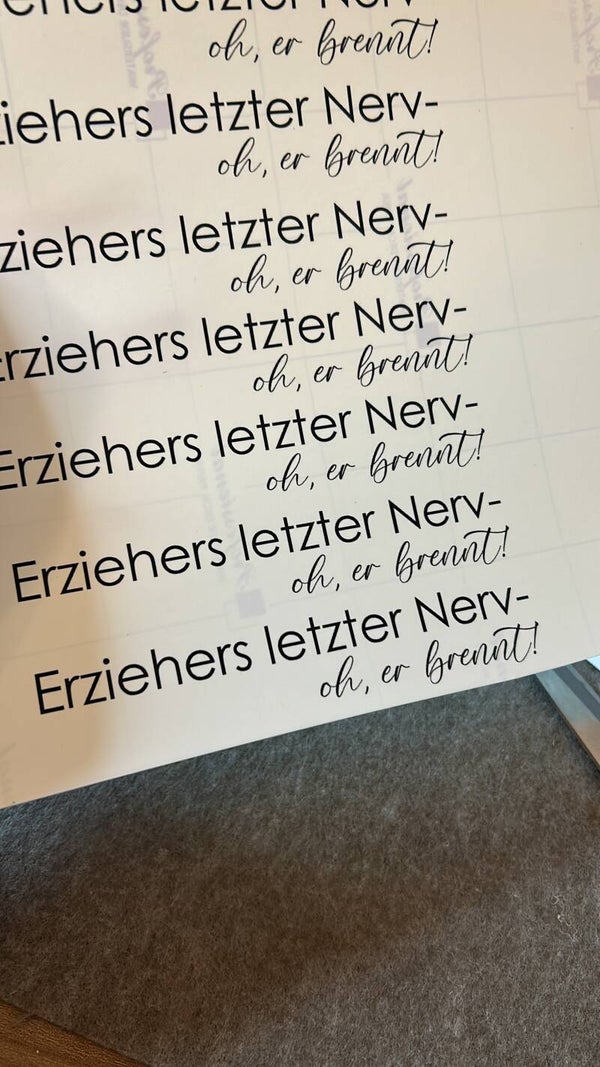 letzter Nerv-
oh, er brennt!
iehers letzter Nerv-
oh, er brennt!
ziehers letzter Nerv-
oh, er brennt!
rziehers letzter Nerv-
oh, er brennt!
Erziehers letzter Nerv-
oh, er brennt!
Erziehers letzter Nerv-
oh, er brennt!
Erziehers letzter Nerv-
oh, er brennt!